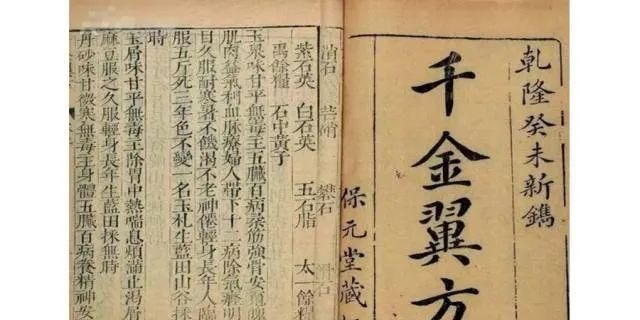 乾隆癸未新鐫
千金翼方
保元堂藏
消石 芒硝 礬石 滑石
紫石英 白石英 五石脂 太一餘糧
禹餘糧 石中黃子
玉泉味甘平無毒主五臟百病柔筋強骨安魂
肌肉益氣利血脉療婦人帶下十二病除氣癃明
日久服耐寒暑不飢渴不老神僊輕身長年人
服五斤死三年色不變一名玉札生藍田山谷採
時
玉屑味甘平無毒主除胃中熱喘息煩滿止渴屑
麻豆服之久服輕身長年生藍田採無時
丹砂味甘微寒無毒主身體五臟百病養精神安